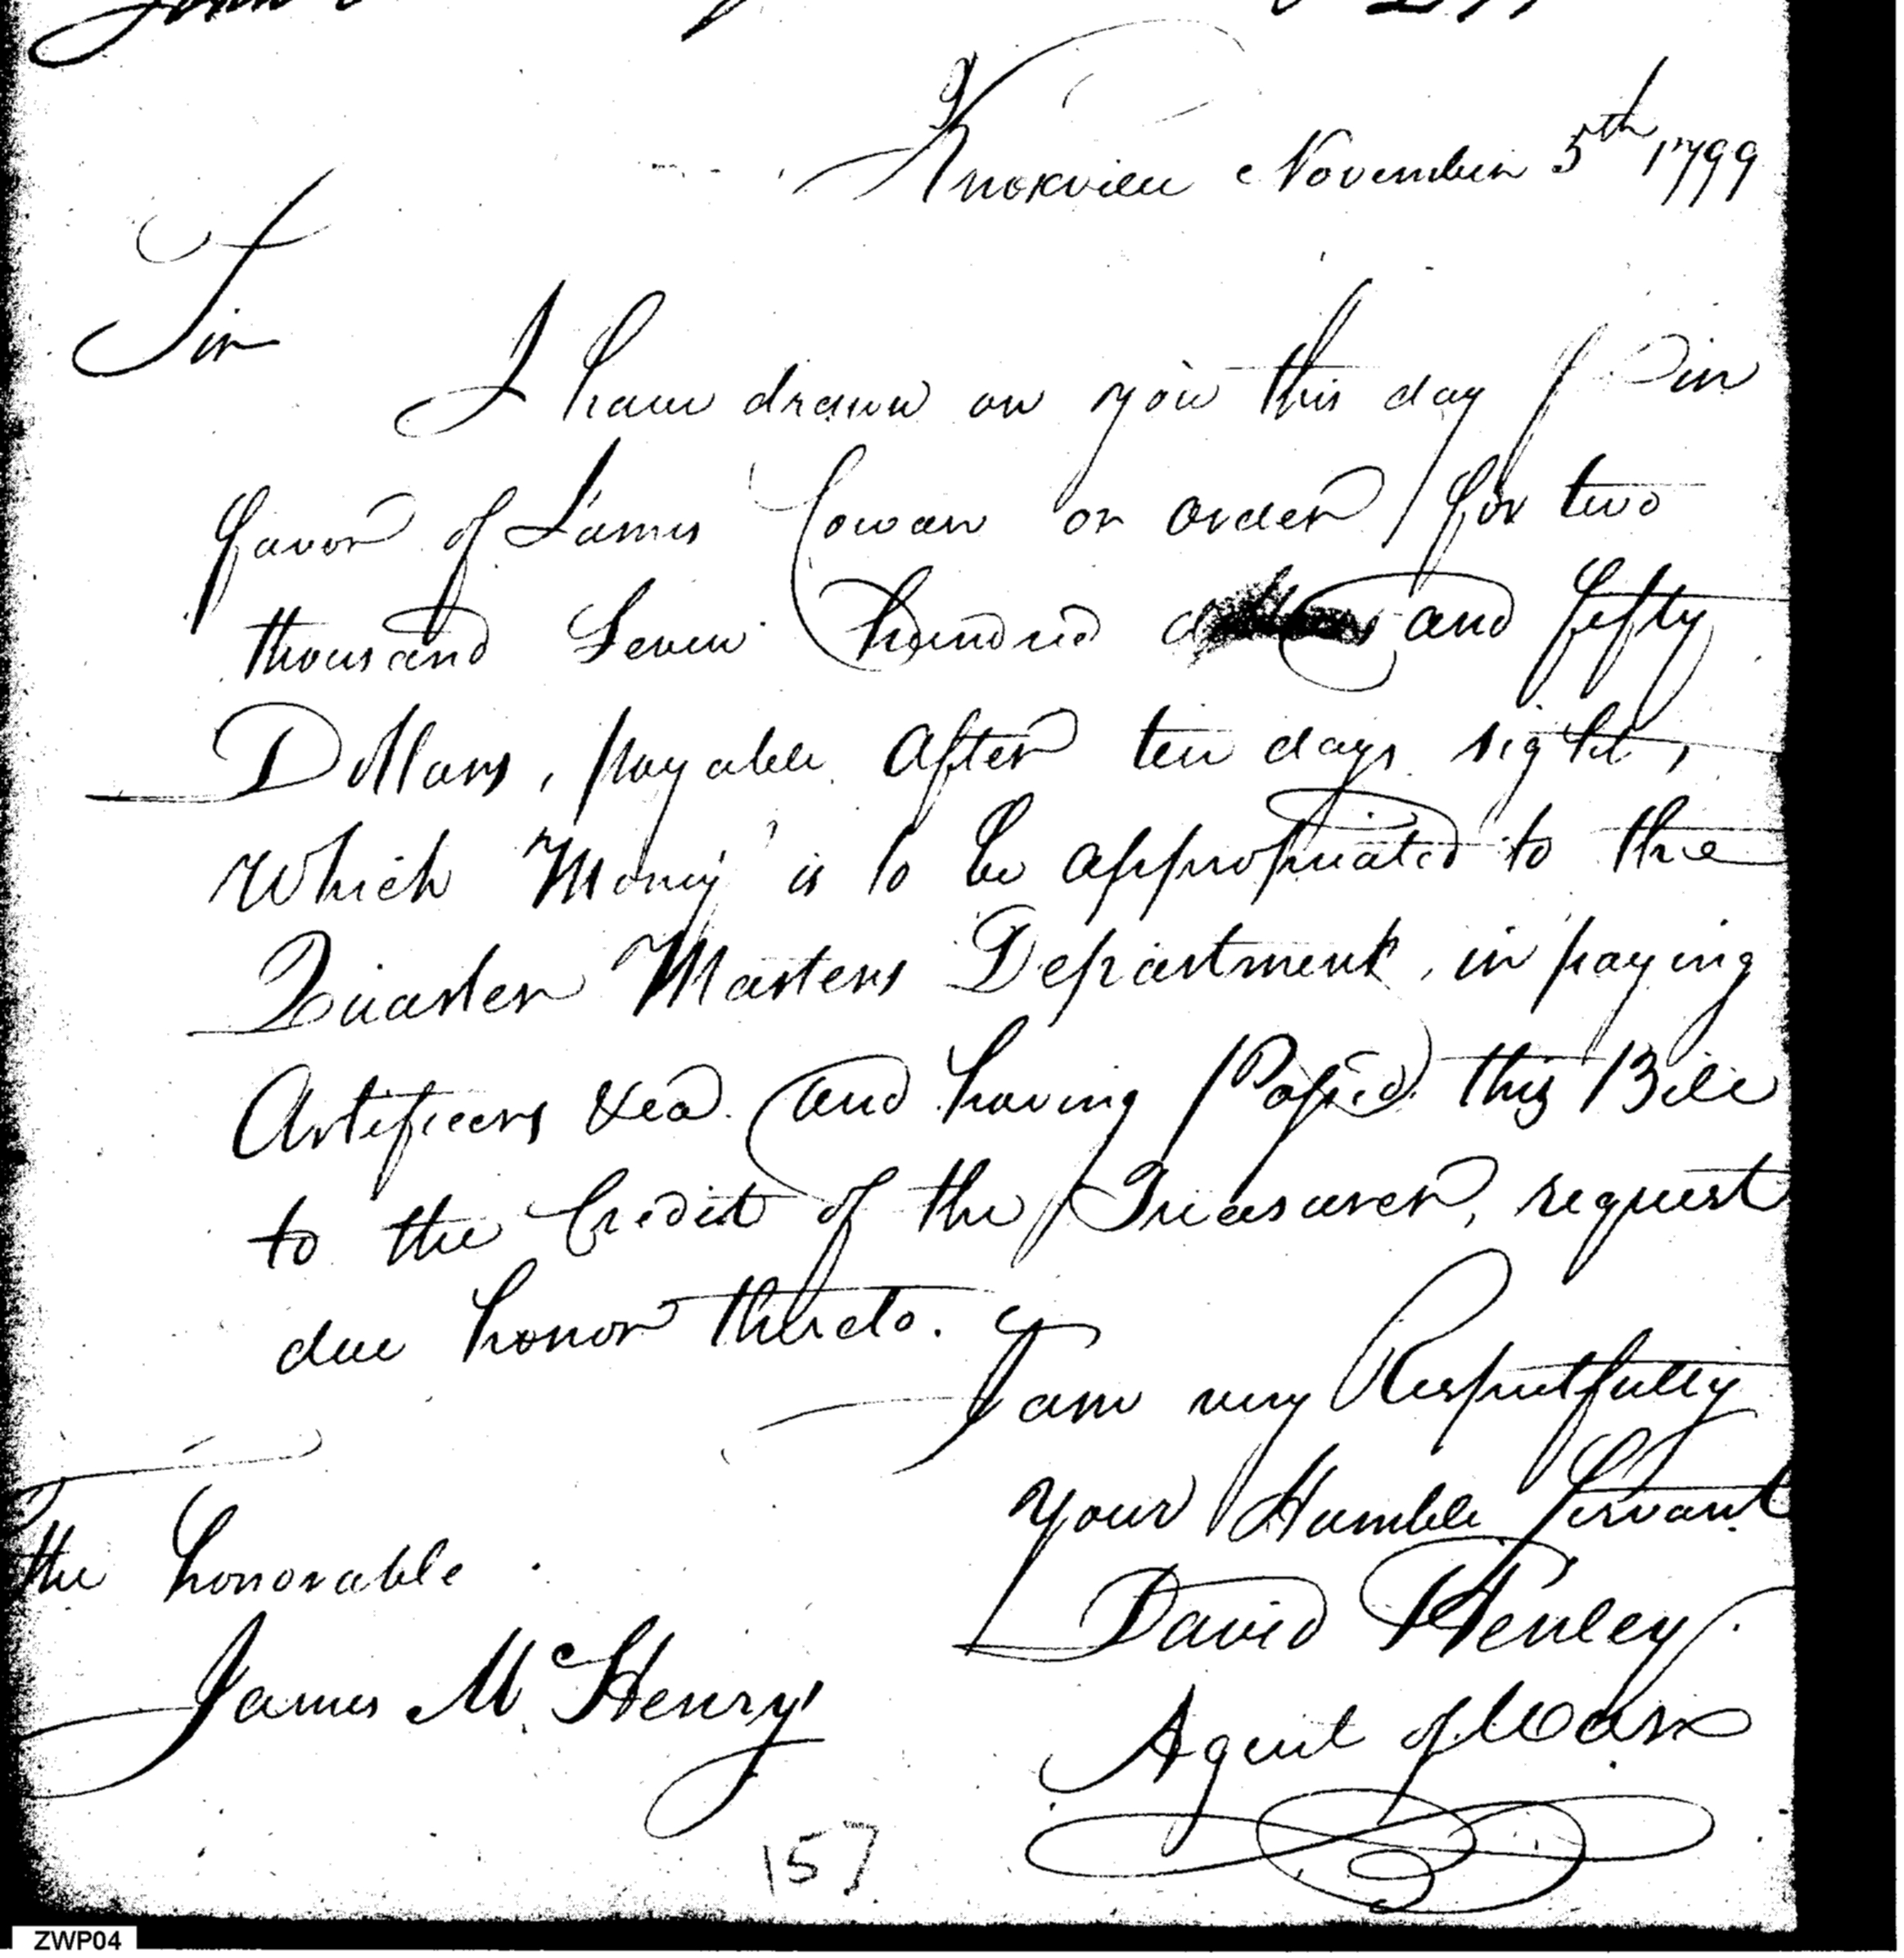 Knoxville November 5th 1799
Sir
I have drawn on you this day in
favor of James Cowan or order for two
thousand Seven hundred and fifty
Dollars, payable after ten days sight,
Which Money is to be appropriated to the
Quarter Masters Department, in paying
Artificers &ca. and having Passed this Bill
to the Credit of the Treasurer, request
due honor thereto.
I am very Respectfully
your Humble Servant
David Henley
Agent of War
The honorable
James McHenry
157
ZWP04